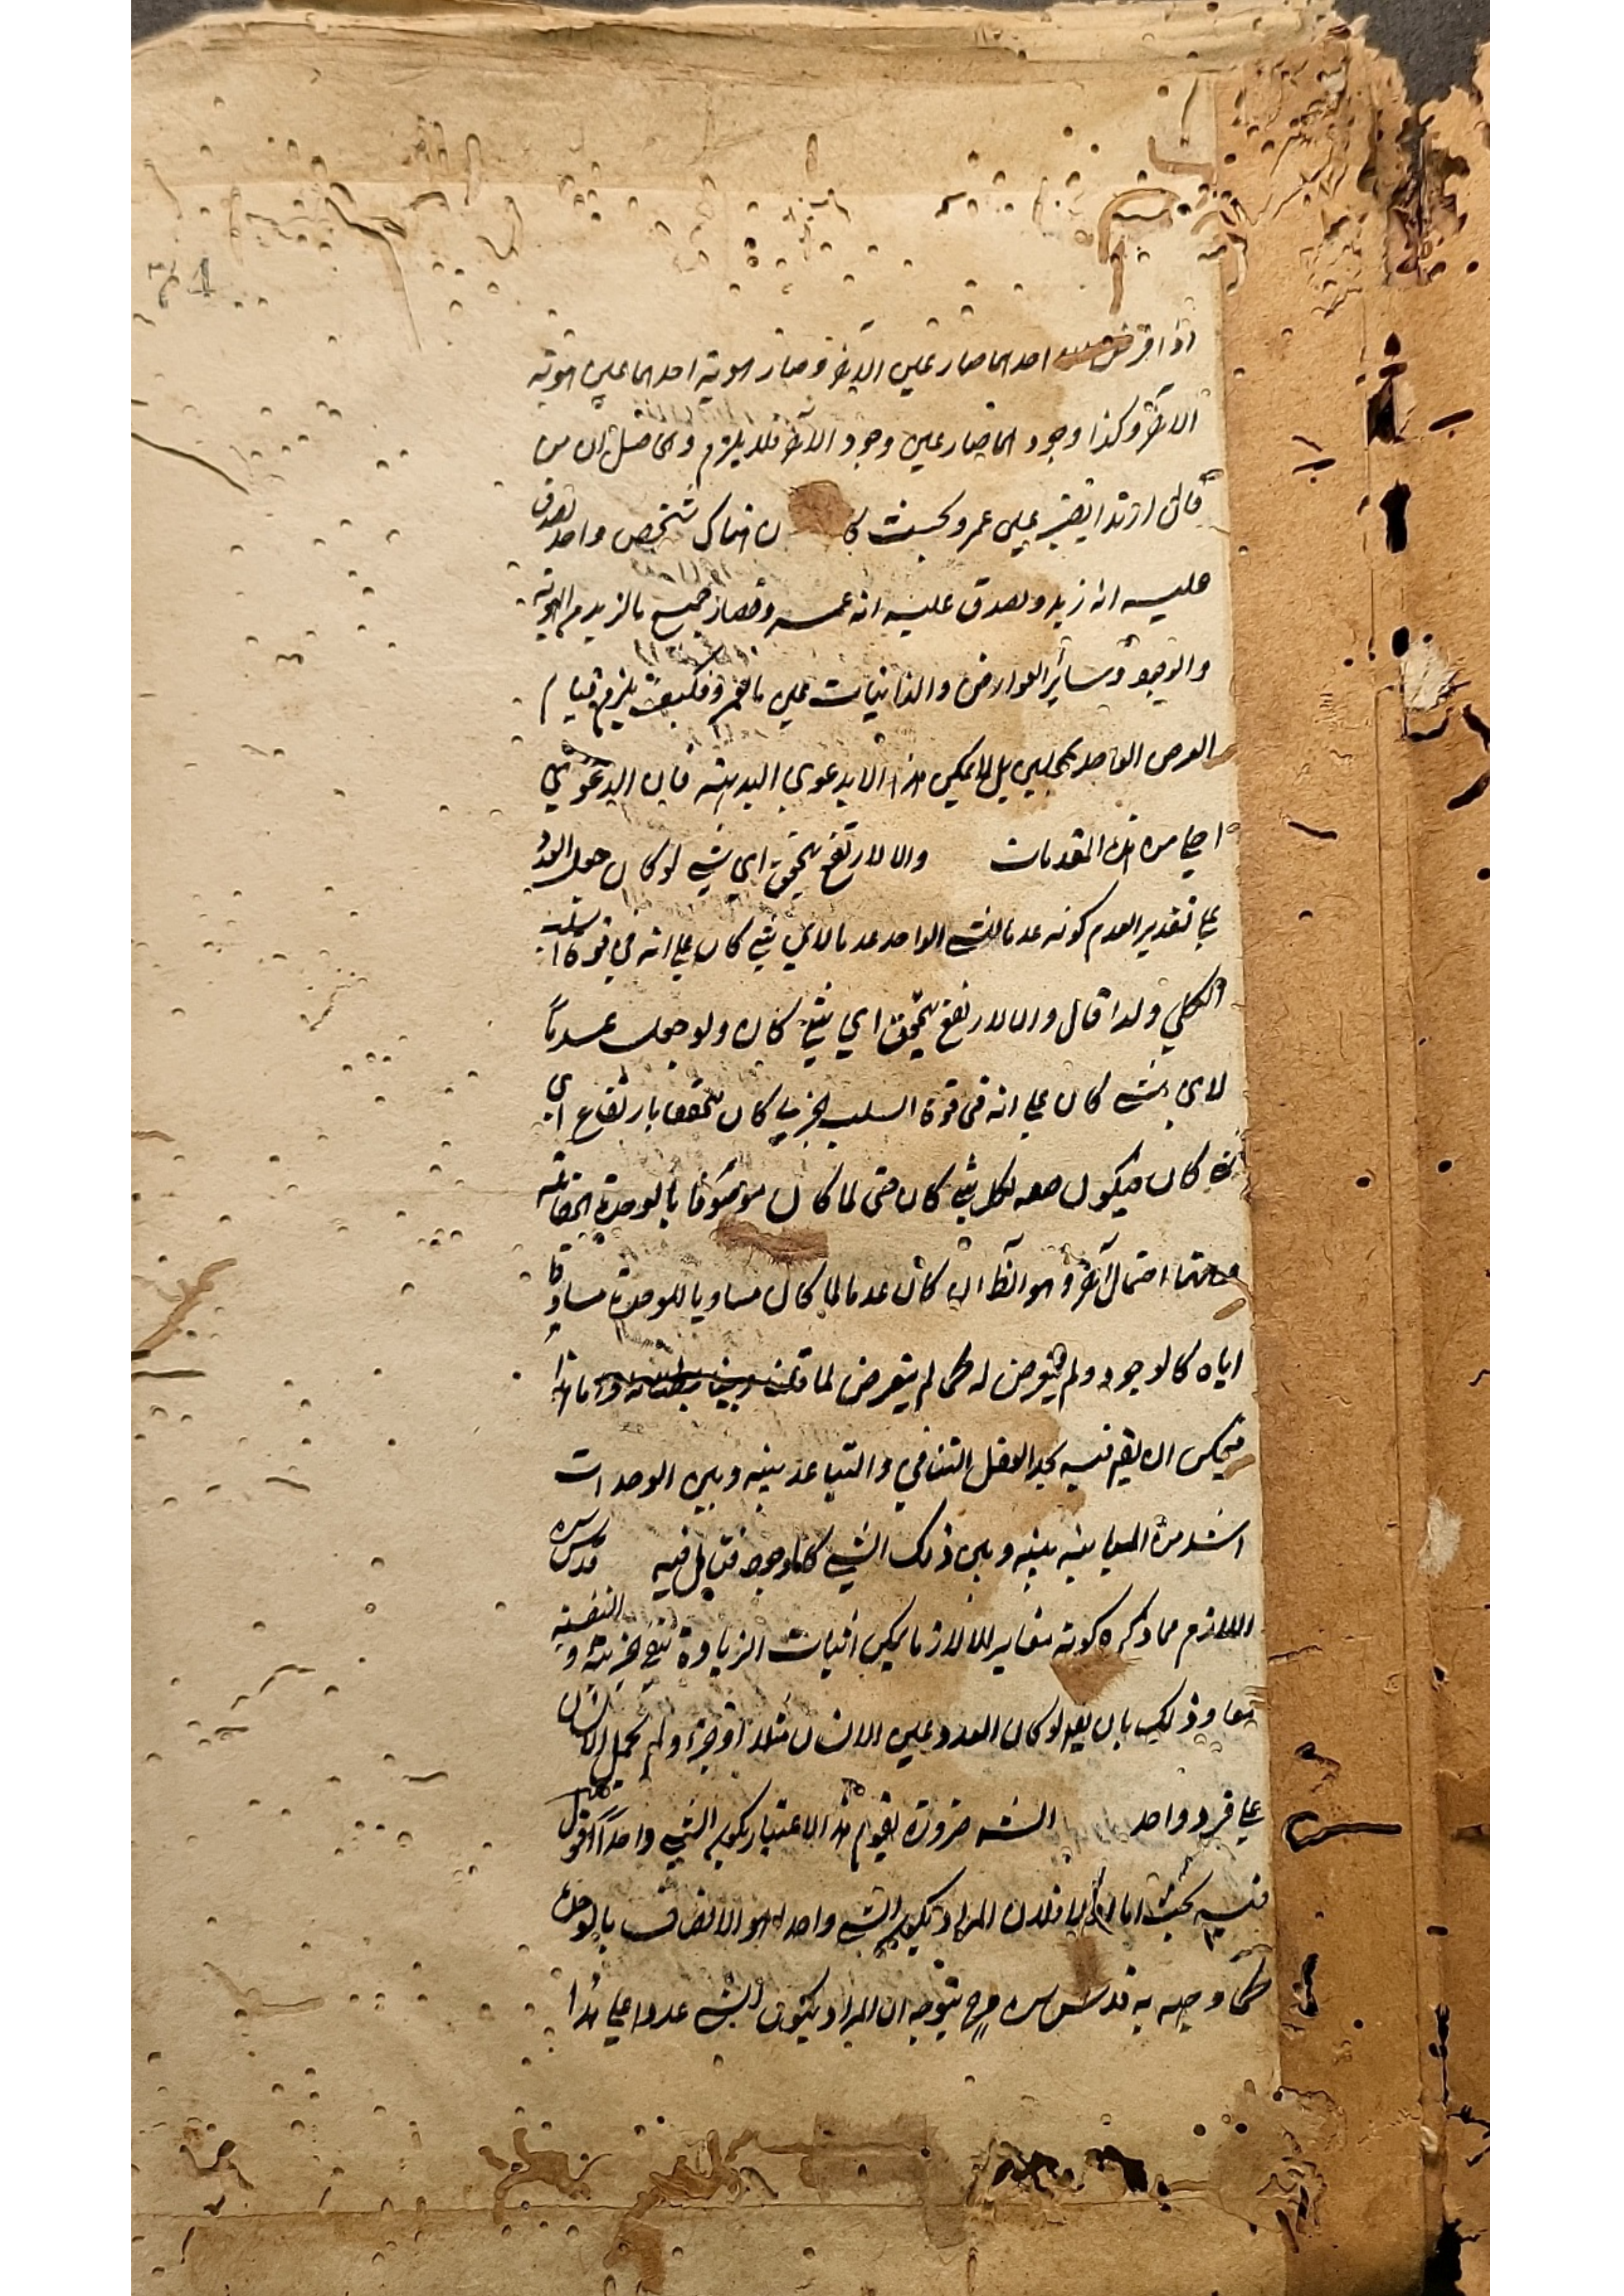 اذا فرض احدهما صار عين الآخر و صار هوية احدهما عين هوية
الآخر و كذا وجود احدهما صار عين وجود الآخر فلا يلزم والحاصل ان من
قال ان زيدا يصير عين عمرو بحيث كا ن هناك شخص واحد يصدق
عليه انه زيد و يصدق عليه انه عمرو فصار جميع ما لزيد من الهوية
والوجود و سائر العوارض والذاتيات عين ما لعمرو فكيف يلزم قيام
العرض الواحد بمحلين بل لا يمكن هذا الا بدعوى البديهة فان الدعوى
اجلى من هذه المقدمات والا لارتفع بتحقق اي شيء لو كان جعل العدد
على تقدير العدم كونه عدما للشيء الواحد عدما لاي شيء كان على انه في قوة السلب
الكلي ولذا قال والا لارتفع بتحقق اي شيء كان ولو جعل عدماً
لاي شيء كان على انه في قوة السلب الجزئي كان تحققه بارتفاع اي
شيء كان فيكون صفة لكل شيء كان حتى لما كان موصوفا بالوحدة الحقيقية
وههنا احتمال آخر و هو انظ ان كان عدما لما كان مساويا للوحدة مساوقا
اياه كالوجود ولم يتعرض له كما لم يتعرض لما قلت واما هذا
فيمكن ان يقم فيه يجد العقل التنافي والتباعد بينه و بين الوحدات
اشد من المباينة بينه و بين ذلك الشيء كالوجود فتأمل فيه قدس سره
اللازم مما ذكره كونه مغايرا للا لازما يمكن اثبات الزيادة بنفي جزئيته و النفسية
معا و ذلك بان يقم لو كان العدد عين الانسان مثلا او جزءه لم يحمل الانسان
على فرد واحد الشه ضرورة يقوم هذا الاعتبار بكون الشيء واحدا اقول
فيه بحث اما اولا فلان المراد بكون الشيء واحدا هو الاتصاف بالوحدة
كما وجه به قدس سره فح يتوجه ان المراد بكون الشيء عددا على هذا